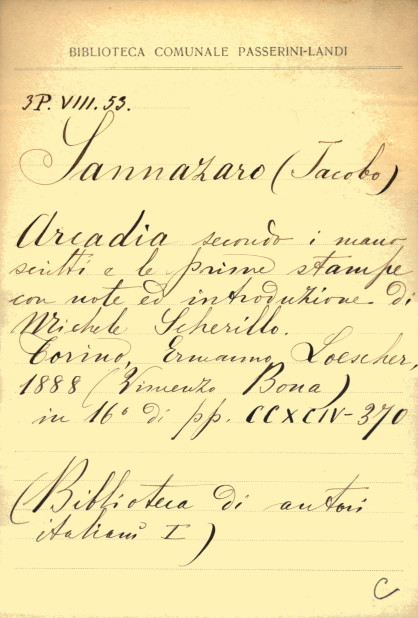 BIBLIOTECA COMUNALE PASSERINI-LANDI
3P. VIII. 53.
Sannazaro (Jacobo)
Arcadia secondo i mano
scritti e le prime stampe
con note ed introduzione di
Michele Scherillo.
Torino, Ermanno Loescher,
1888 (Vincenzo Bona)
in 16° di pp. CCXCIV-370
(Biblioteca di autori
italiani I)
C